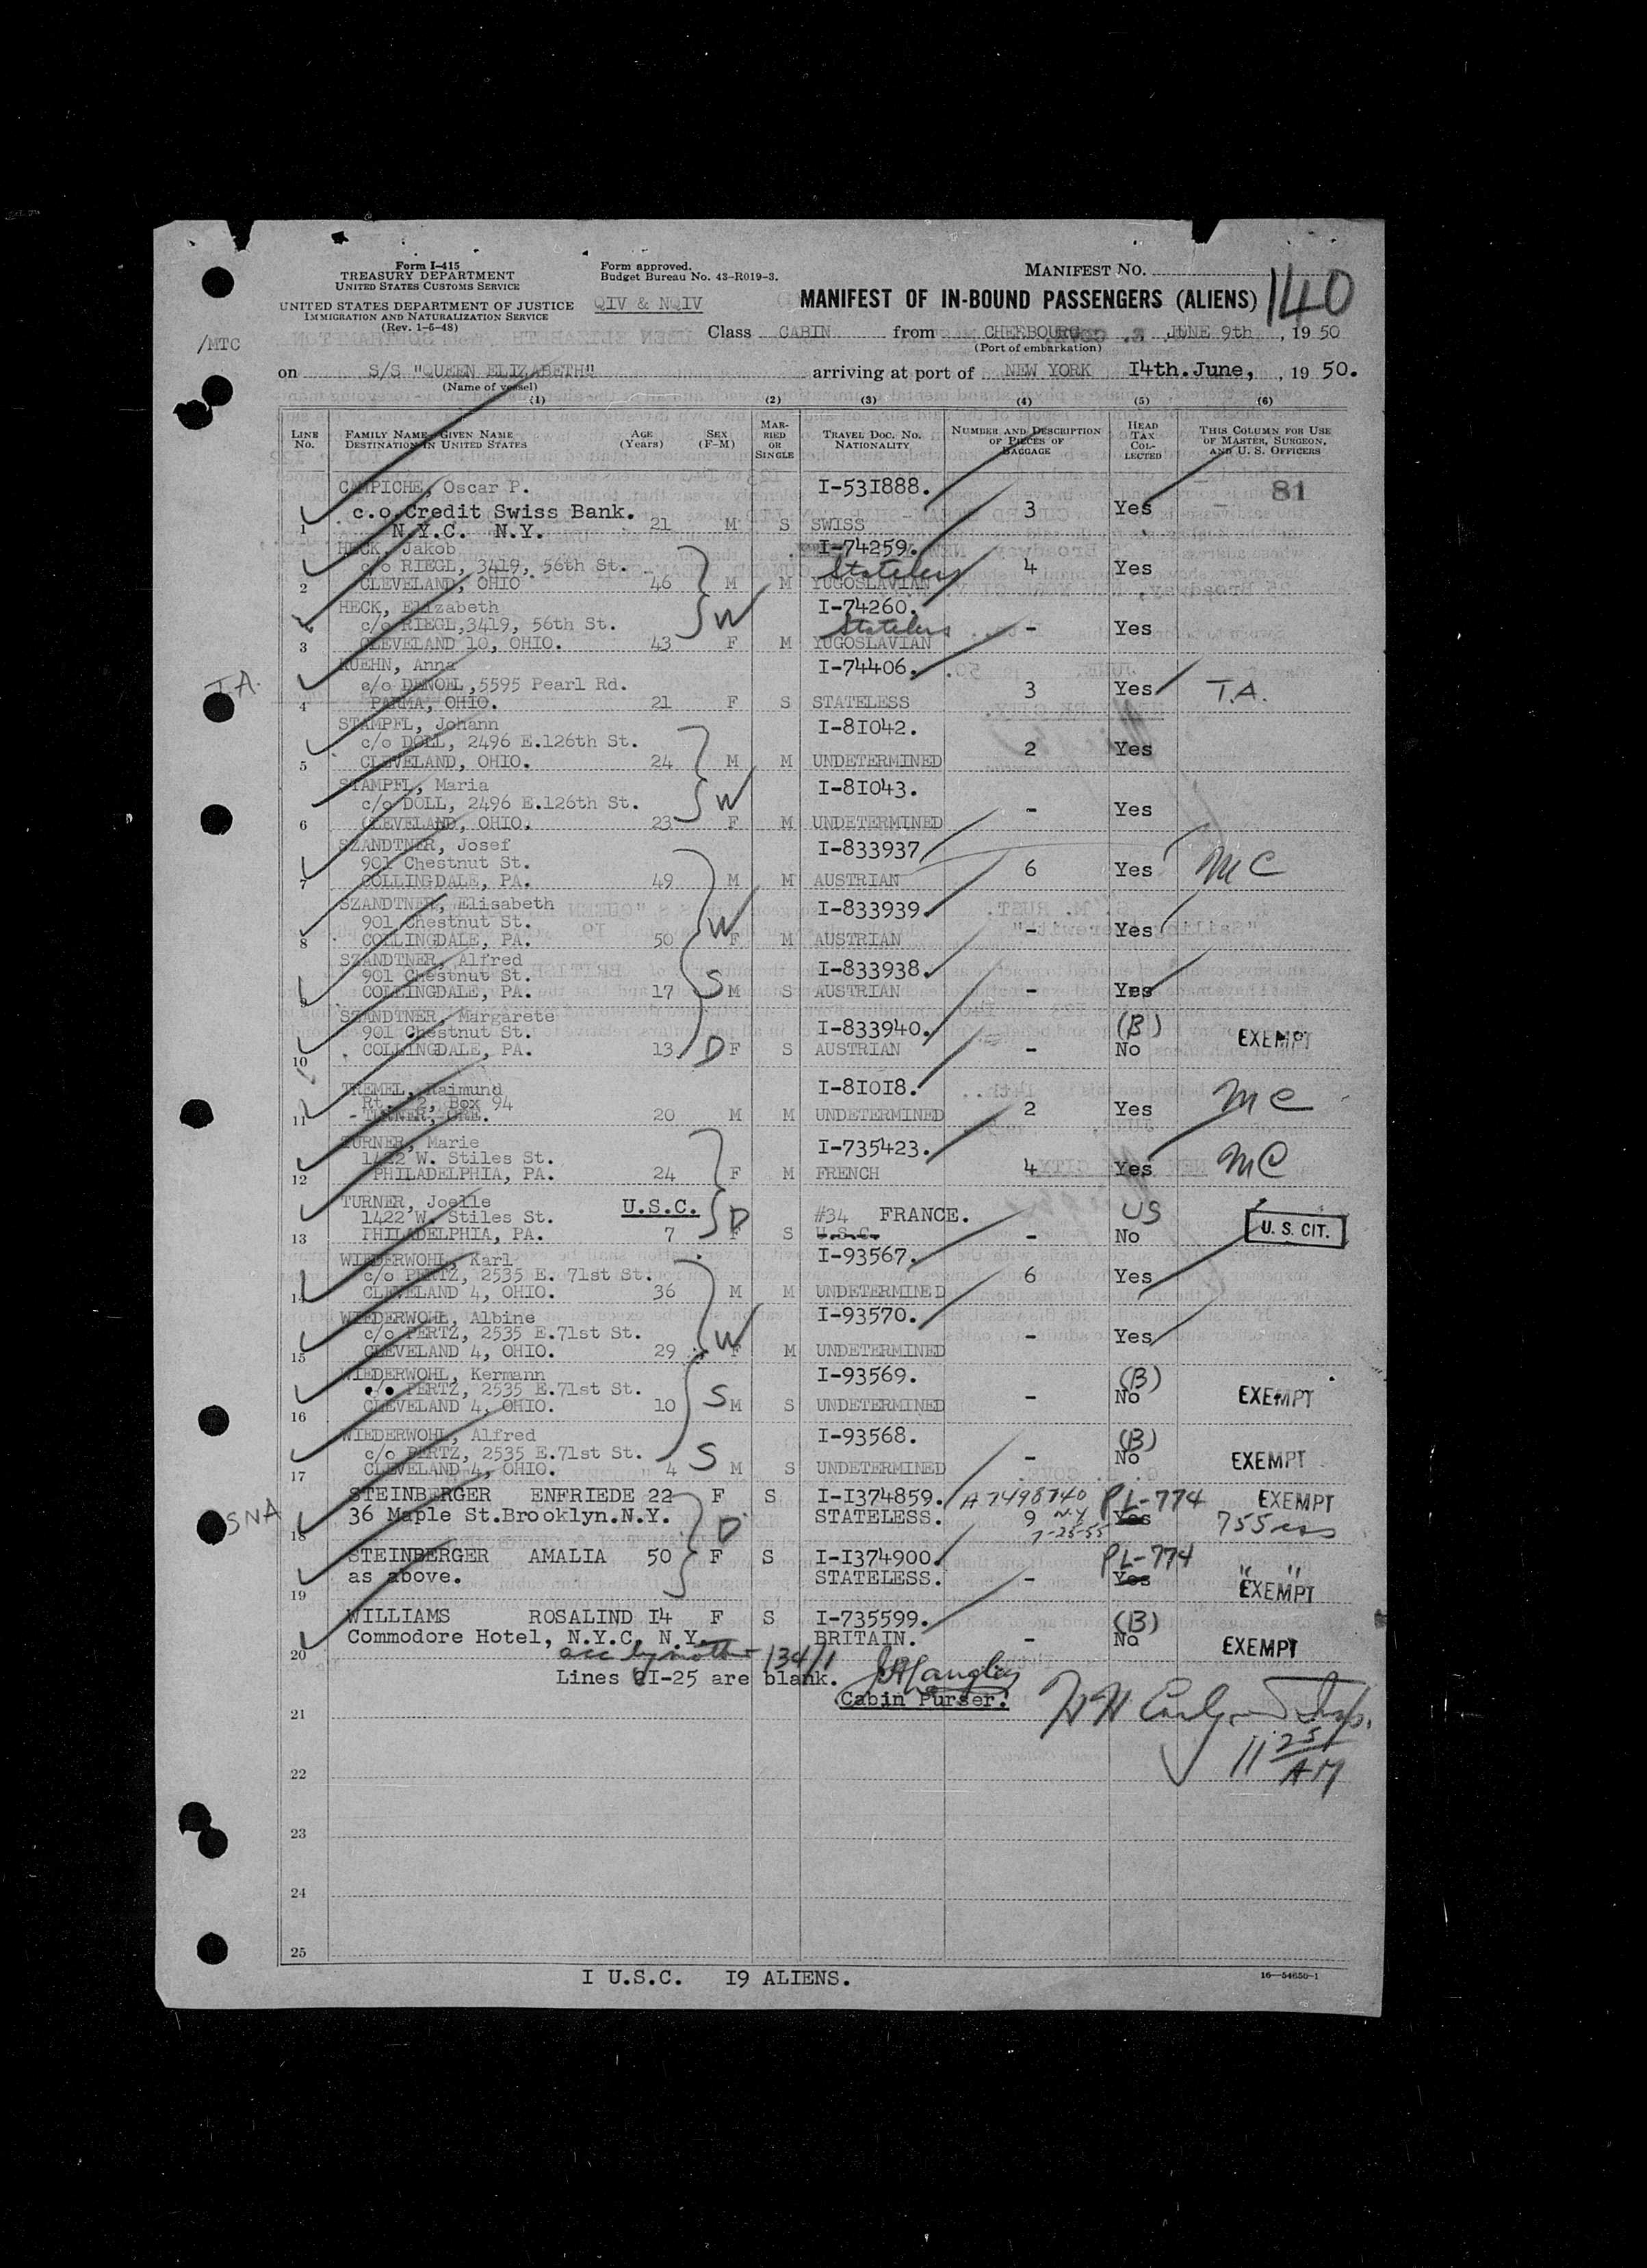 Form I-415
TREASURY DEPARTMENT
UNITED STATES CUSTOMS SERVICE
UNITED STATES DEPARTMENT OF JUSTICE
IMMIGRATION AND NATURALIZATION SERVICE
(Rev. 1-5-48)
Form approved.
Budget Bureau No. 43-R019-3.
QIV & NQIV
MANIFEST NO.
140
MANIFEST OF IN-BOUND PASSENGERS (ALIENS)
/MTC
Class CABIN from CHERBOURG JUNE 9th, 1950
(Port of embarkation)
on S/S "QUEEN ELIZABETH" arriving at port of NEW YORK I4th.June, 1950.
(Name of vessel)
(1) (2) (3) (4) (5) (6)
LINE No. FAMILY NAME—GIVEN NAME DESTINATION IN UNITED STATES AGE (Years) SEX (F-M) MARRIED OR SINGLE TRAVEL DOC. NO. NATIONALITY NUMBER AND DESCRIPTION OF PIECES OF BAGGAGE HEAD TAX COLLECTED THIS COLUMN FOR USE OF MASTER, SURGEON, AND U. S. OFFICERS
81
CAMPICHE, Oscar P. I-53I888.
c.o.Credit Swiss Bank. 3 Yes
1 N.Y.C. N.Y. 21 M S SWISS
HECK, Jakob I-74259.
c/o RIEGL, 3419, 56th St. Stateless 4 Yes
2 CLEVELAND, OHIO 46 M M YUGOSLAVIAN
HECK, Elizabeth I-74260.
c/o RIEGL,3419, 56th St. W Stateless - Yes
3 CLEVELAND 10, OHIO. 43 F M YUGOSLAVIAN
KUEHN, Anna I-74406.
T.A. c/o DENOEL,5595 Pearl Rd. 3 Yes T.A.
4 PARMA, OHIO. 21 F S STATELESS
STAMPFL, Johann I-8I042.
c/o DOLL, 2496 E.126th St. 2 Yes
5 CLEVELAND, OHIO. 24 M M UNDETERMINED
STAMPFL, Maria I-8I043.
c/o DOLL, 2496 E.126th St. W - Yes
6 CLEVELAND, OHIO. 23 F M UNDETERMINED
SZANDTNER, Josef I-833937
901 Chestnut St. 6 Yes MC
7 COLLINGDALE, PA. 49 M M AUSTRIAN
SZANDTNER, Elisabeth I-833939.
901 Chestnut St. W - Yes
8 COLLINGDALE, PA. 50 F M AUSTRIAN
SZANDTNER, Alfred I-833938.
901 Chestnut St. S - Yes
9 COLLINGDALE, PA. 17 M S AUSTRIAN
SZANDTNER, Margarete I-833940.
901 Chestnut St. (B) EXEMPT
10 COLLINGDALE, PA. 13 D F S AUSTRIAN - No
TREMEL, Raimund I-8I0I8.
Rt. 2, Box 94 2 Yes MC
11 TURNER, ORE. 20 M M UNDETERMINED
TURNER, Marie I-735423.
1422 W. Stiles St. MC
12 PHILADELPHIA, PA. 24 F M FRENCH 4 Yes
TURNER, Joelle U.S.C. #34 FRANCE. US
1422 W. Stiles St. D U. S. CIT.
13 PHILADELPHIA, PA. 7 F S U.S.C. - No
WIEDERWOHL, Karl I-93567.
c/o PERTZ, 2535 E. 71st St. 6 Yes
14 CLEVELAND 4, OHIO. 36 M M UNDETERMINED
WIEDERWOHL, Albine I-93570.
c/o PERTZ, 2535 E.71st St. W - Yes
15 CLEVELAND 4, OHIO. 29 F M UNDETERMINED
WIEDERWOHL, Kermann I-93569. (B)
c/o PERTZ, 2535 E.71st St. S - No EXEMPT
16 CLEVELAND 4, OHIO. 10 M S UNDETERMINED
WIEDERWOHL, Alfred I-93568. (B)
c/o PERTZ, 2535 E.71st St. S - No EXEMPT
17 CLEVELAND 4, OHIO. 4 M S UNDETERMINED
STEINBERGER ENFRIEDE 22 F S I-I374859. A7498740 PL-774 EXEMPT
SNA 36 Maple St.Brooklyn.N.Y. D STATELESS. 9 N.Y. Yes
18 7-25-55
STEINBERGER AMALIA 50 F S I-I374900. PL-774
as above. STATELESS. - Yes " EXEMPT "
19
WILLIAMS ROSALIND I4 F S I-735599. (B)
Commodore Hotel, N.Y.C. N.Y. BRITAIN. - No EXEMPT
20 acc by mother 134/1
Lines 2I-25 are blank.
Cabin Purser.
21
11 25 AM
22
23
24
25
I U.S.C. I9 ALIENS.
16—54650-1